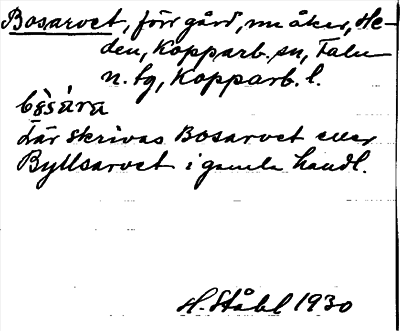 Bosarvet, förr gård, nu åker, He-
den, Kopparb. sn, Falu
n. tg, Kopparb. l.
där skrivas Bosarvet eller
Byllsarvet i gamla handl.
H. Ståhl 1930